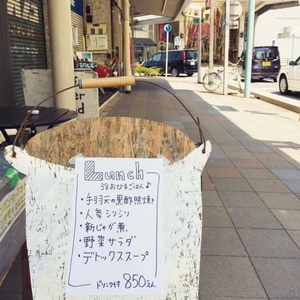 Lunch
おひるごはん♪
・手羽元の黒酢照焼き
・人参シリシリ
・新じゃが煮
・野菜サラダ
・デトックススープ
ドリンク付 850えん